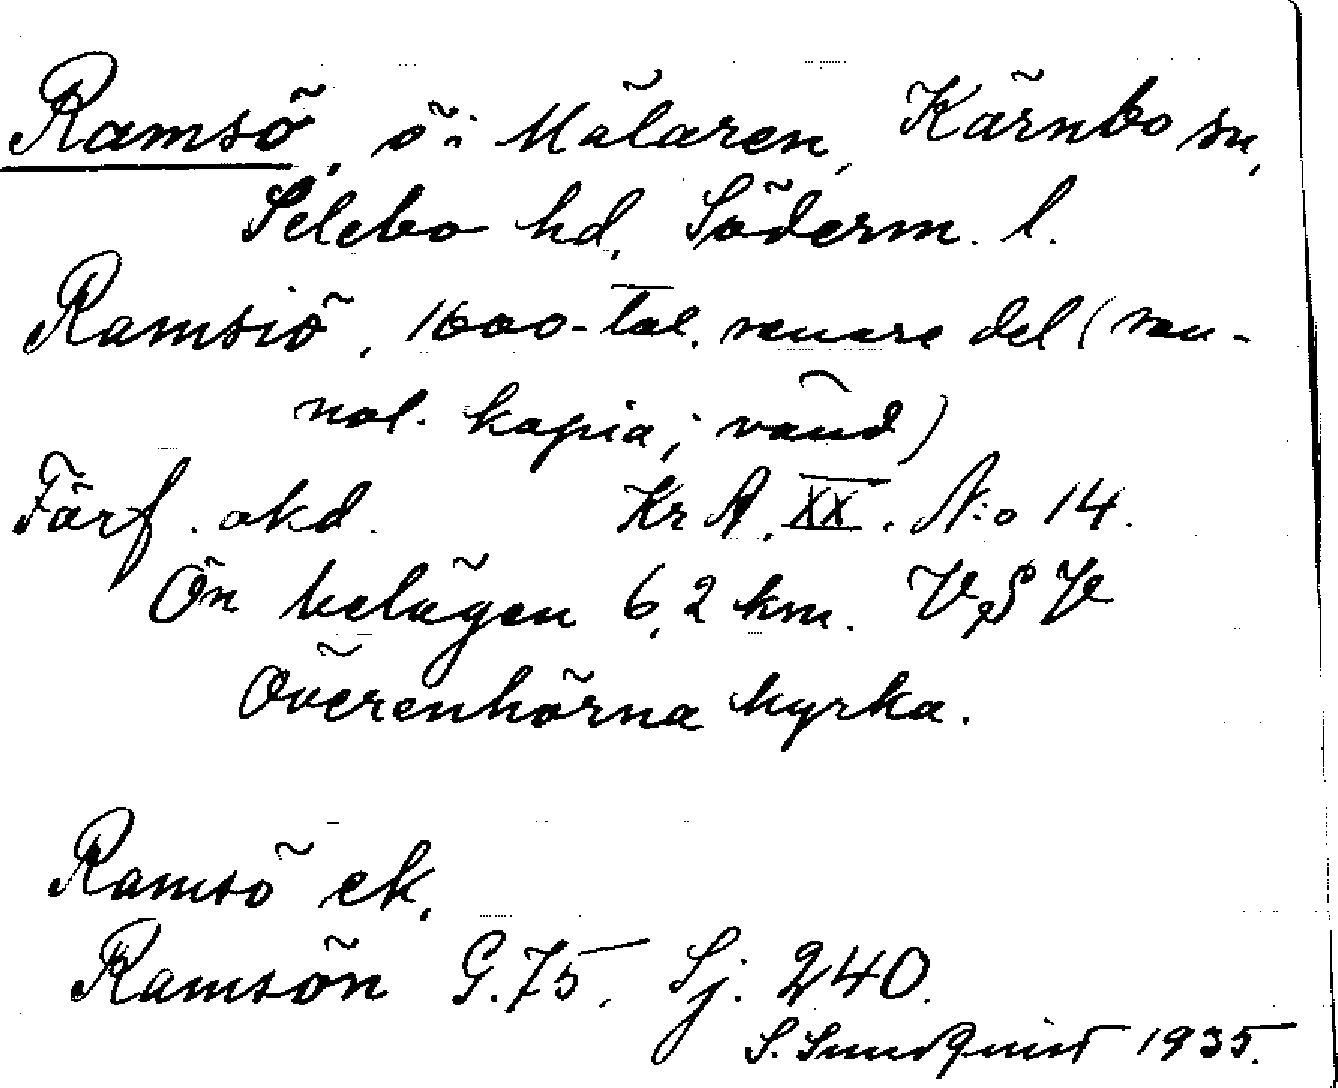 Ramsö, ö i Mälaren, Kärnbo sn,
Selebo hd, Söderm. l.
Ramsiö, 1600-tal. senare del (san-
nol. kopia; vänd)
Förf. okd. Kr A. XX. N:o 14.
Ön belägen 6,2 km. V,S V
Överenhörna kyrka.
Ramsö ek.
Ramsön G. 75, Sj. 240.
S. Sundquist 1935.